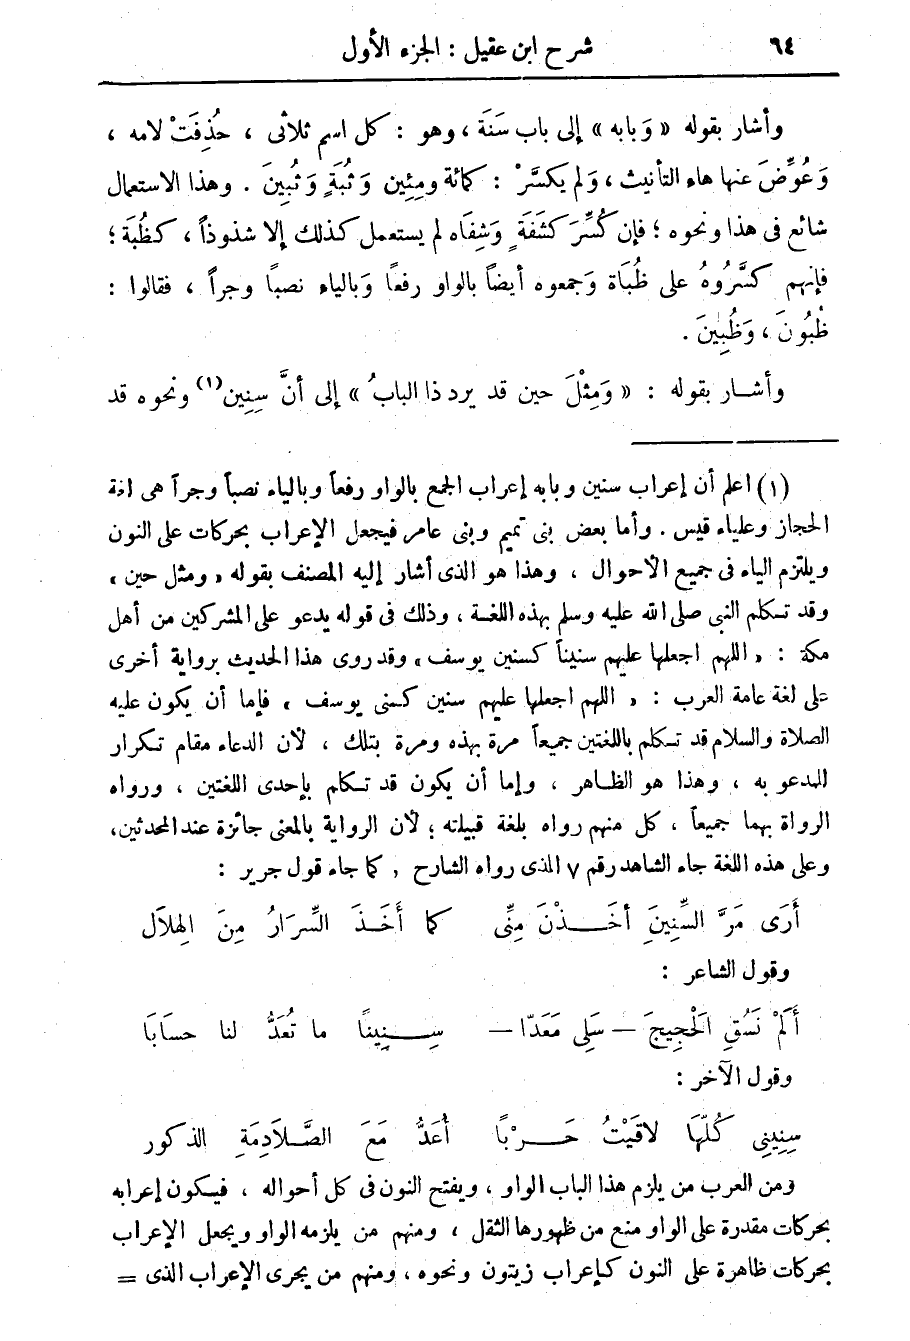 ٦٤ شرح ابن عقيل : الجزء الأول
وأشار بقوله « وَبابه » إلى باب سَنَة ، وهو : كل اسم ثلاثى ، حُذِفَتْ لامه ،
وَعُوِّضَ عنها هاء التأنيث ، وَلم يكسَّرْ : كمائة ومِئِين وَثُبَةٍ وَثُبِينَ . وهذا الاستعمال
شائع فى هذا ونحوه ؛ فإن كُسِّرَ كشَفَةٍ وَشِفَاه لم يستعمل كذلك إلا شذوذاً ، كظُبَة ؛
فإنهم كسَّرُوهُ على ظُبَاة وَجمعوه أيضاً بالواو رفعًا وَبالياء نصبًا وجراً ، فقالوا :
ظُبُونَ ، وَظُبِينَ .
وأشار بقوله : « وَمِثْلَ حين قد يرد ذا البابُ » إلى أنَّ سِنِين (١) ونحوه قد
(١) اعلم أن إعراب سنين وبابه إعراب الجمع بالواو رفعاً وبالياء نصباً وجراً هى لغة
الحجاز وعلياء قيس . وأما بعض بنى تميم وبنى عامر فيجعل الإعراب بحركات على النون
ويلتزم الياء فى جميع الأحوال ، وهذا هو الذى أشار إليه المصنف بقوله « ومثل حين »
وقد تكلم النبى صلى الله عليه وسلم بهذه اللغة ، وذلك فى قوله يدعو على المشركين من أهل
مكة : « اللهم اجعلها عليهم سنيناً كسنين يوسف » وقد روى هذا الحديث برواية أخرى
على لغة عامة العرب : « اللهم اجعلها عليهم سنين كسنى يوسف » فإما أن يكون عليه
الصلاة والسلام قد تكلم باللغتين جميعاً مرة بهذه ومرة بتلك ، لأن الدعاء مقام تكرار
للمدعو به ، وهذا هو الظاهر ، وإما أن يكون قد تكلم بإحدى اللغتين ، ورواه
الرواة بهما جميعاً ، كل منهم رواه بلغة قبيلته ؛ لأن الرواية بالمعنى جائزة عند المحدثين ،
وعلى هذه اللغة جاء الشاهد رقم ٧ الذى رواه الشارح , كما جاء قول جرير :
أَرَى مَرَّ السِّنِينَ أخَذْنَ مِنِّى كما أَخَذَ السِّرَارُ مِنَ الهِلاَل
وقول الشاعر :
أَلَمْ نَسُقِ الْحَجِيجَ — سَلِى مَعَدّا — سِنِينًا ما تُعَدُّ لنا حسَابَا
وقول الآخر :
سِنِينِى كُلّهَا لاقَيْتُ حَرْبًا أُعَدُّ مَعَ الصَّلاَدِمَةِ الذكور
ومن العرب من يلزم هذا الباب الواو ، ويفتح النون فى كل أحواله ، فيكون إعرابه
بحركات مقدرة على الواو منع من ظهورها الثقل ، ومنهم من يلزمه الواو ويجعل الإعراب
بحركات ظاهرة على النون كإعراب زيتون ونحوه ، ومنهم من يجرى الإعراب الذى =